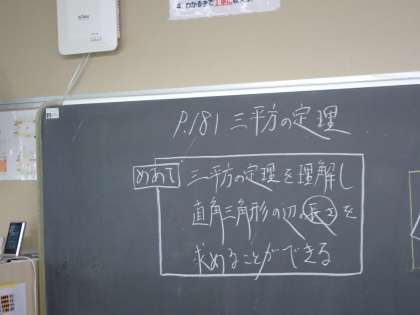 4. わかる子で
P.181 三平方の定理
めあて 三平方の定理を理解し
直角三角形の辺の長さを
求めることができる